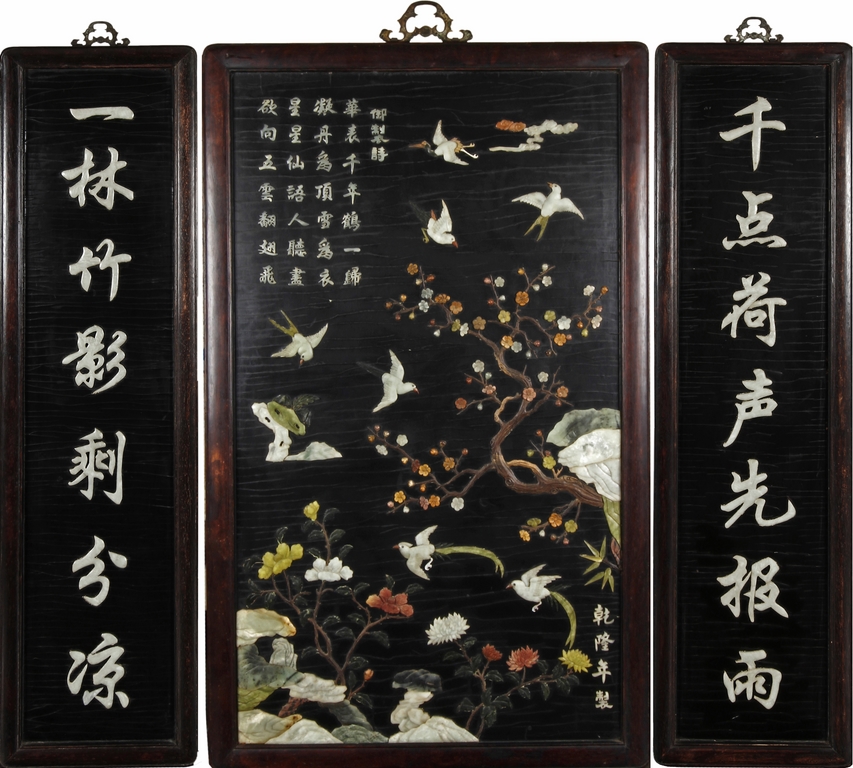 千点荷声先报雨
御製詩
華表千年鶴一歸
凝丹為頂雪為衣
星星仙語人聽盡
欲向五雲翻翅飛
乾隆年製
一林竹影剩分凉